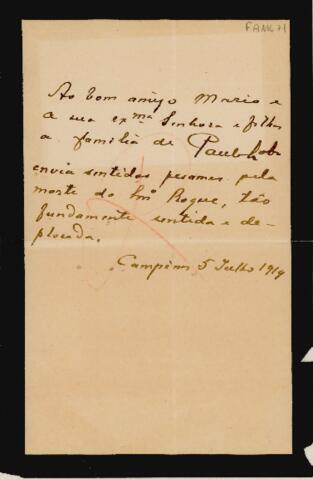 Ao bom amigo Mario e
a sua exma Senhora e filhos
a familia de Paulo Lobo
envia sentidos pesames pela
morte do Imo Roque, tão
fundamente sentida e de-
plorada.
Campinas 5 Julho 1919